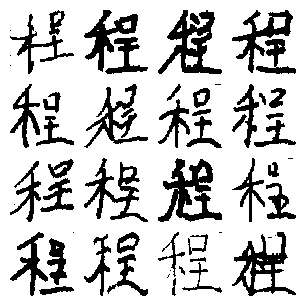 程程程程
程程程程
程程程程
程程程程